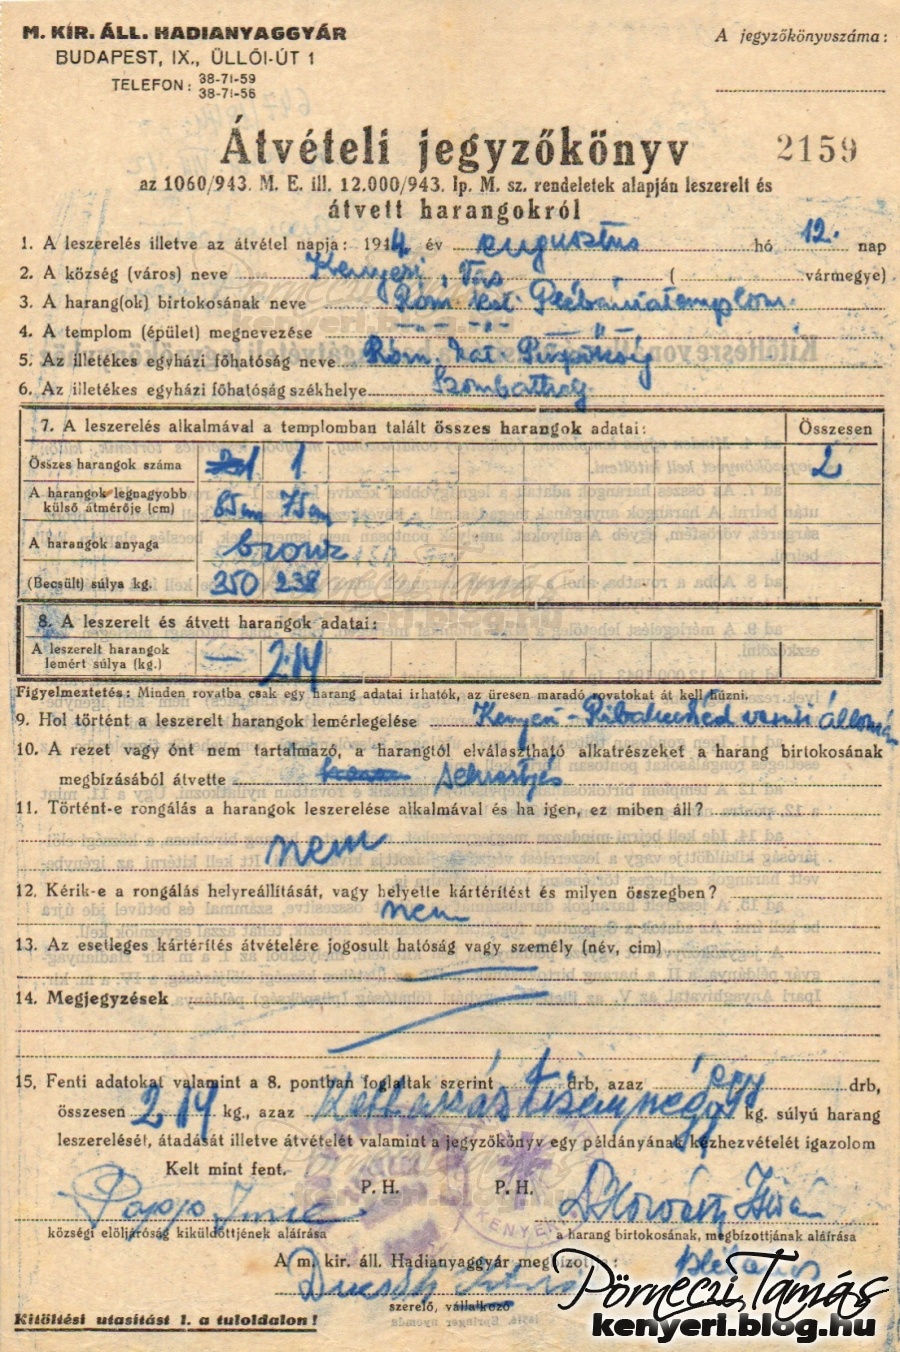 M. KIR. ÁLL. HADIANYAGGYÁR
BUDAPEST, IX., ÜLLŐI-ÚT 1
TELEFON: 38-71-59
38-71-56
A jegyzőkönyv száma:
Átvételi jegyzőkönyv 2159
az 1060/943. M. E. ill. 12.000/943. Ip. M. sz. rendeletek alapján leszerelt és
átvett harangokról
1. A leszerelés illetve az átvétel napja: 1944 év augusztus hó 12. nap
2. A község (város) neve Kenyeri, Vas ( vármegye)
3. A harang(ok) birtokosának neve Róm. kat. Plébániatemplom.
4. A templom (épület) megnevezése
5. Az illetékes egyházi főhatóság neve Róm. kat. Püspökség
6. Az illetékes egyházi főhatóság székhelye Szombathely
7. A leszerelés alkalmával a templomban talált összes harangok adatai: Összesen
Összes harangok száma 1 1 2
A harangok legnagyobb
külső átmérője (cm) 85cm 75cm
A harangok anyaga bronz
(Becsült) súlya kg. 350 238
8. A leszerelt és átvett harangok adatai:
A leszerelt harangok
lemért súlya (kg.) — 214
Figyelmeztetés: Minden rovatba csak egy harang adatai írhatók, az üresen maradó rovatokat át kell húzni.
9. Hol történt a leszerelt harangok lemérlegelése Kenyeri - vasúti állomás
10. A rezet vagy ónt nem tartalmazó, a harangtól elválasztható alkatrészeket a harang birtokosának
megbízásából átvette
11. Történt-e rongálás a harangok leszerelése alkalmával és ha igen, ez miben áll?
nem
12. Kérik-e a rongálás helyreállítását, vagy helyette kártérítést és milyen összegben?
nem
13. Az esetleges kártérítés átvételére jogosult hatóság vagy személy (név, cím)
14. Megjegyzések
15. Fenti adatokat valamint a 8. pontban foglaltak szerint 1 drb, azaz egy drb,
összesen 214 kg., azaz Kettőszáztizennégy kg. súlyú harang
leszerelését, átadását illetve átvételét valamint a jegyzőkönyv egy példányának kézhezvételét igazolom
Kelt mint fent.
P. H. P. H.
Papp Imre Horváth
községi elöljáróság kiküldöttjének aláírása a harang birtokosának, megbízottjának aláírása
plébános
A m. kir. áll. Hadianyaggyár megbízott:
szerelő, vállalkozó
KENYERI
Kitöltési utasítást l. a tuloldalon!
Pörneczi Tamás
kenyeri.blog.hu